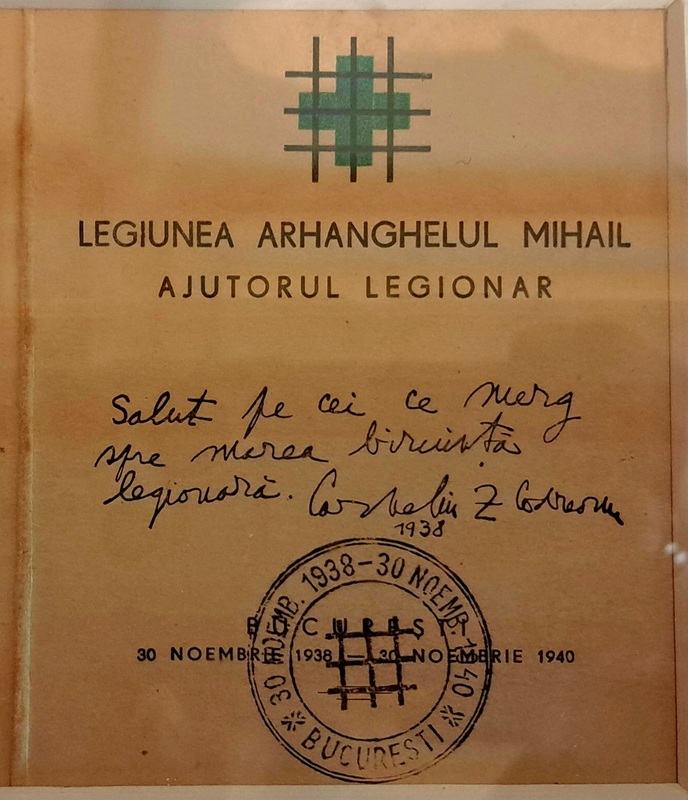 LEGIUNEA ARHANGHELUL MIHAIL
AJUTORUL LEGIONAR
Salut pe cei ce merg
spre marea biruință
legionară. Corneliu Z Codreanu
1938
BUCUREȘTI
30 NOEMBRIE 1938 — 30 NOEMBRIE 1940
30 NOEMB. 1938-30 NOEMB. 1940
BUCUREȘTI